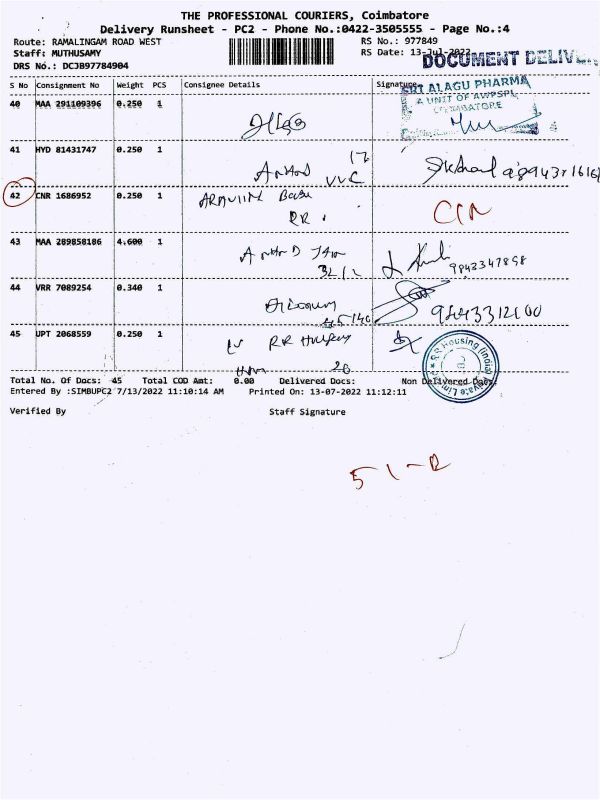 THE PROFESSIONAL COURIERS, Coimbatore
Delivery Runsheet - PC2 - Phone No.:0422-3505555 - Page No.:4
Route: RAMALINGAM ROAD WEST RS No.: 977849
Staff: MUTHUSAMY RS Date: 13-Jul-2022
DRS No.: DCJB97784904 DOCUMENT DELIV
S No Consignment No Weight PCS Consignee Details Signature
SRI ALAGU PHARMA
A UNIT OF AWPSPL
COIMBATORE
40 MAA 291109396 0.250 1
41 HYD 81431747 0.250 1
17
VVC
42 CNR 1686952 0.250 1
RR
43 MAA 289858186 4.600 1
9842347898
44 VRR 7089254 0.340 1
9843312100
45 UPT 2068559 0.250 1
RR
20
RR Housing (India) Private Limited
Total No. Of Docs: 45 Total COD Amt: 0.00 Delivered Docs: Non Delivered Docs:
Entered By :SIMBUPC2 7/13/2022 11:10:14 AM Printed On: 13-07-2022 11:12:11
Verified By Staff Signature